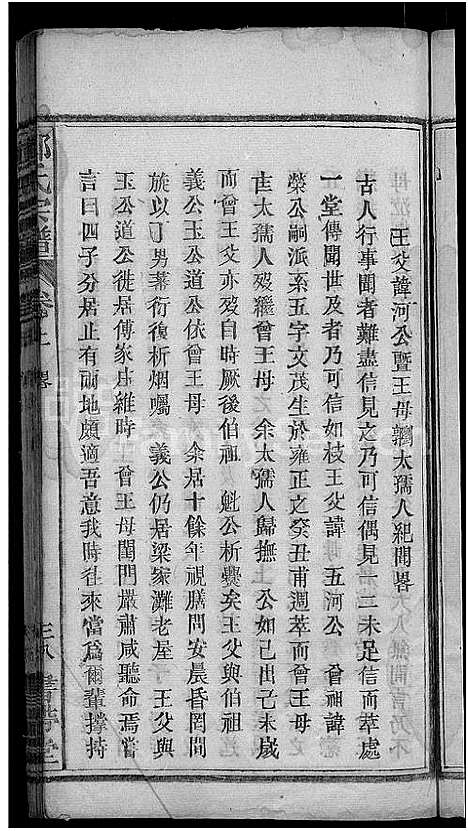 王父諱河公暨王母鄒太孺人紀聞畧
古人行事聞者難盡信見之乃可信偶見一二未足信而萃處
一堂傳聞世及者乃可信如枝王父諱 五河公 曾祖諱
榮公嗣派系五字文茂生於雍正之癸丑甫週萃而曾王母
世太孺人歿繼曾王母 余太孺人歸撫王 公如己出己未歲
而曾王父亦歿自時厥後伯祖 魁公析爨矣王父與伯祖
義公玉公道公依曾王母 余居十餘年視膳問安晨昏罔間
族以丁男蕃衍復析烟囑 義公仍居梁家灘老屋 王父與
玉公道公徙居傅家庄維時 曾王母閨門嚴肅咸聽命焉嘗
言曰四子分居止有兩地頗適吾意我時往來當為爾輩撐持
氏宗譜 卷上